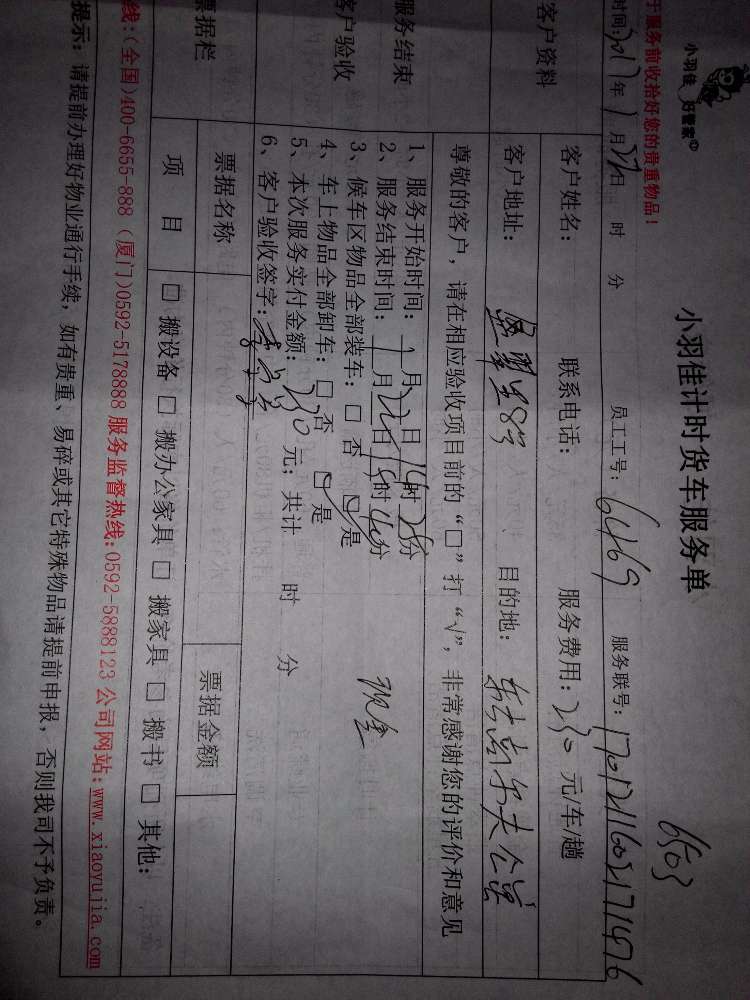 小羽佳 好管家
小羽佳计时货车服务单
6503
于服务前收拾好您的贵重物品！
时间:2017年1月22日 时 分 员工工号: 6469 服务联号:
客户资料
客户姓名: 联系电话: 服务费用: 230 元/车/趟
客户地址: 83 目的地:
尊敬的客户，请在相应验收项目前的“□”打“√”，非常感谢您的评价和意见
服务结束
客户验收
1、服务开始时间: 1月22日14时25分
2、服务结束时间: 1月22日15时40分
3、候车区物品全部装车: □ 否 ☑ 是
现金
4、车上物品全部卸车: □ 否 ☑ 是
5、本次服务实付金额: 230 元; 共计 时 分
6、客户验收签字:
票据栏
票据名称 票据金额
项 目 □ 搬设备 □ 搬办公家具 □ 搬家具 □ 搬书 □ 其他:
线:(全国)400-6655-888 (厦门)0592-5178888 服务监督热线:0592-5888123 公司网站:www.xiaoyujia.com
提示: 请提前办理好物业通行手续，如有贵重、易碎或其它特殊物品请提前申报，否则我司不予负责。